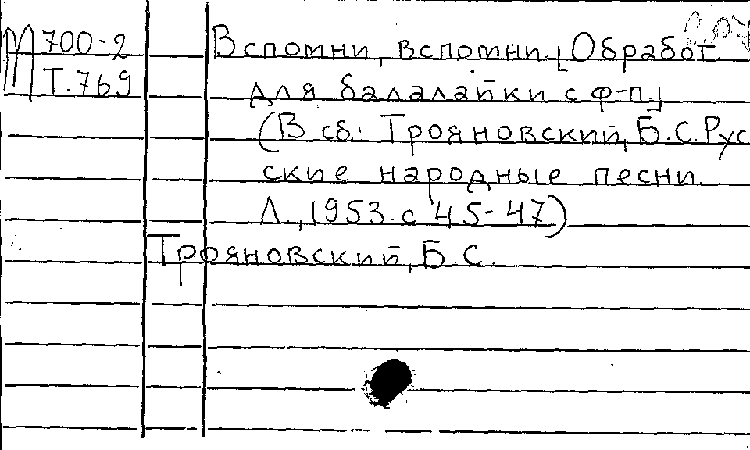 М 700-2
Т.769
Вспомни, вспомни. [Обработ.
для балалайки с ф-п.]
(В сб: Трояновский, Б.С. Рус
ские народные песни.
Л., 1953. с 45-47)
Трояновский, Б.С.